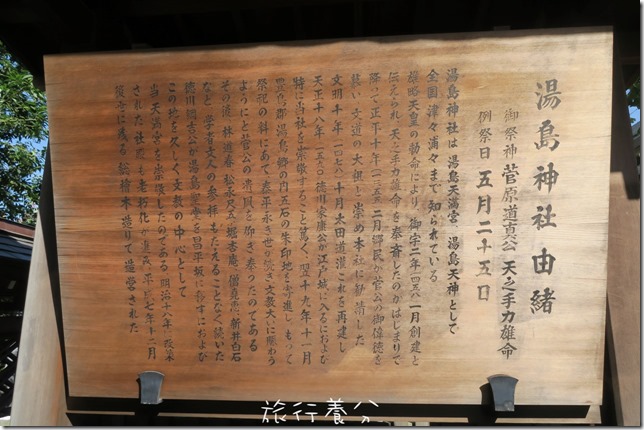 湯島神社由緒
御祭神 菅原道真公 天之手力雄命
例祭日 五月二十五日
湯島神社は 湯島天満宮 湯島天神として
全国津々浦々まで知られている
雄略天皇の勅命により 御宇二年(四五八)一月創建と
伝えられ 天之手力雄命を奉斎したのがはじまりで
降って正平十年(一三五五)二月郷民が菅公の御偉徳を
慕い 文道の大祖と崇め本社に勧請した
文明十年(一四七八)十月太田道灌これを再建し
天正十八年(一五九〇)徳川家康公が江戸城に入るにおよび
特に当社を崇敬すること篤く 翌十九年十一月
豊島郡湯島郷の内五石の朱印地を寄進し もって
祭祀の料にあて 泰平永き世が続き 文教大いに賑わう
ようにと菅公の遺風を仰ぎ奉ったのである
その後 林道春 松永尺五 堀杏庵 僧堯恵 新井白石
など 学者文人の参拝もたえることなく続いた
徳川綱吉公が湯島聖堂を昌平坂に移すにおよび
この地を久しく文教の中心として
当天満宮を崇敬したのである 明治十八年に改築
された社殿も老朽化が進み 平成七年十二月
後世に残る総檜木造りで造営された
旅行養分